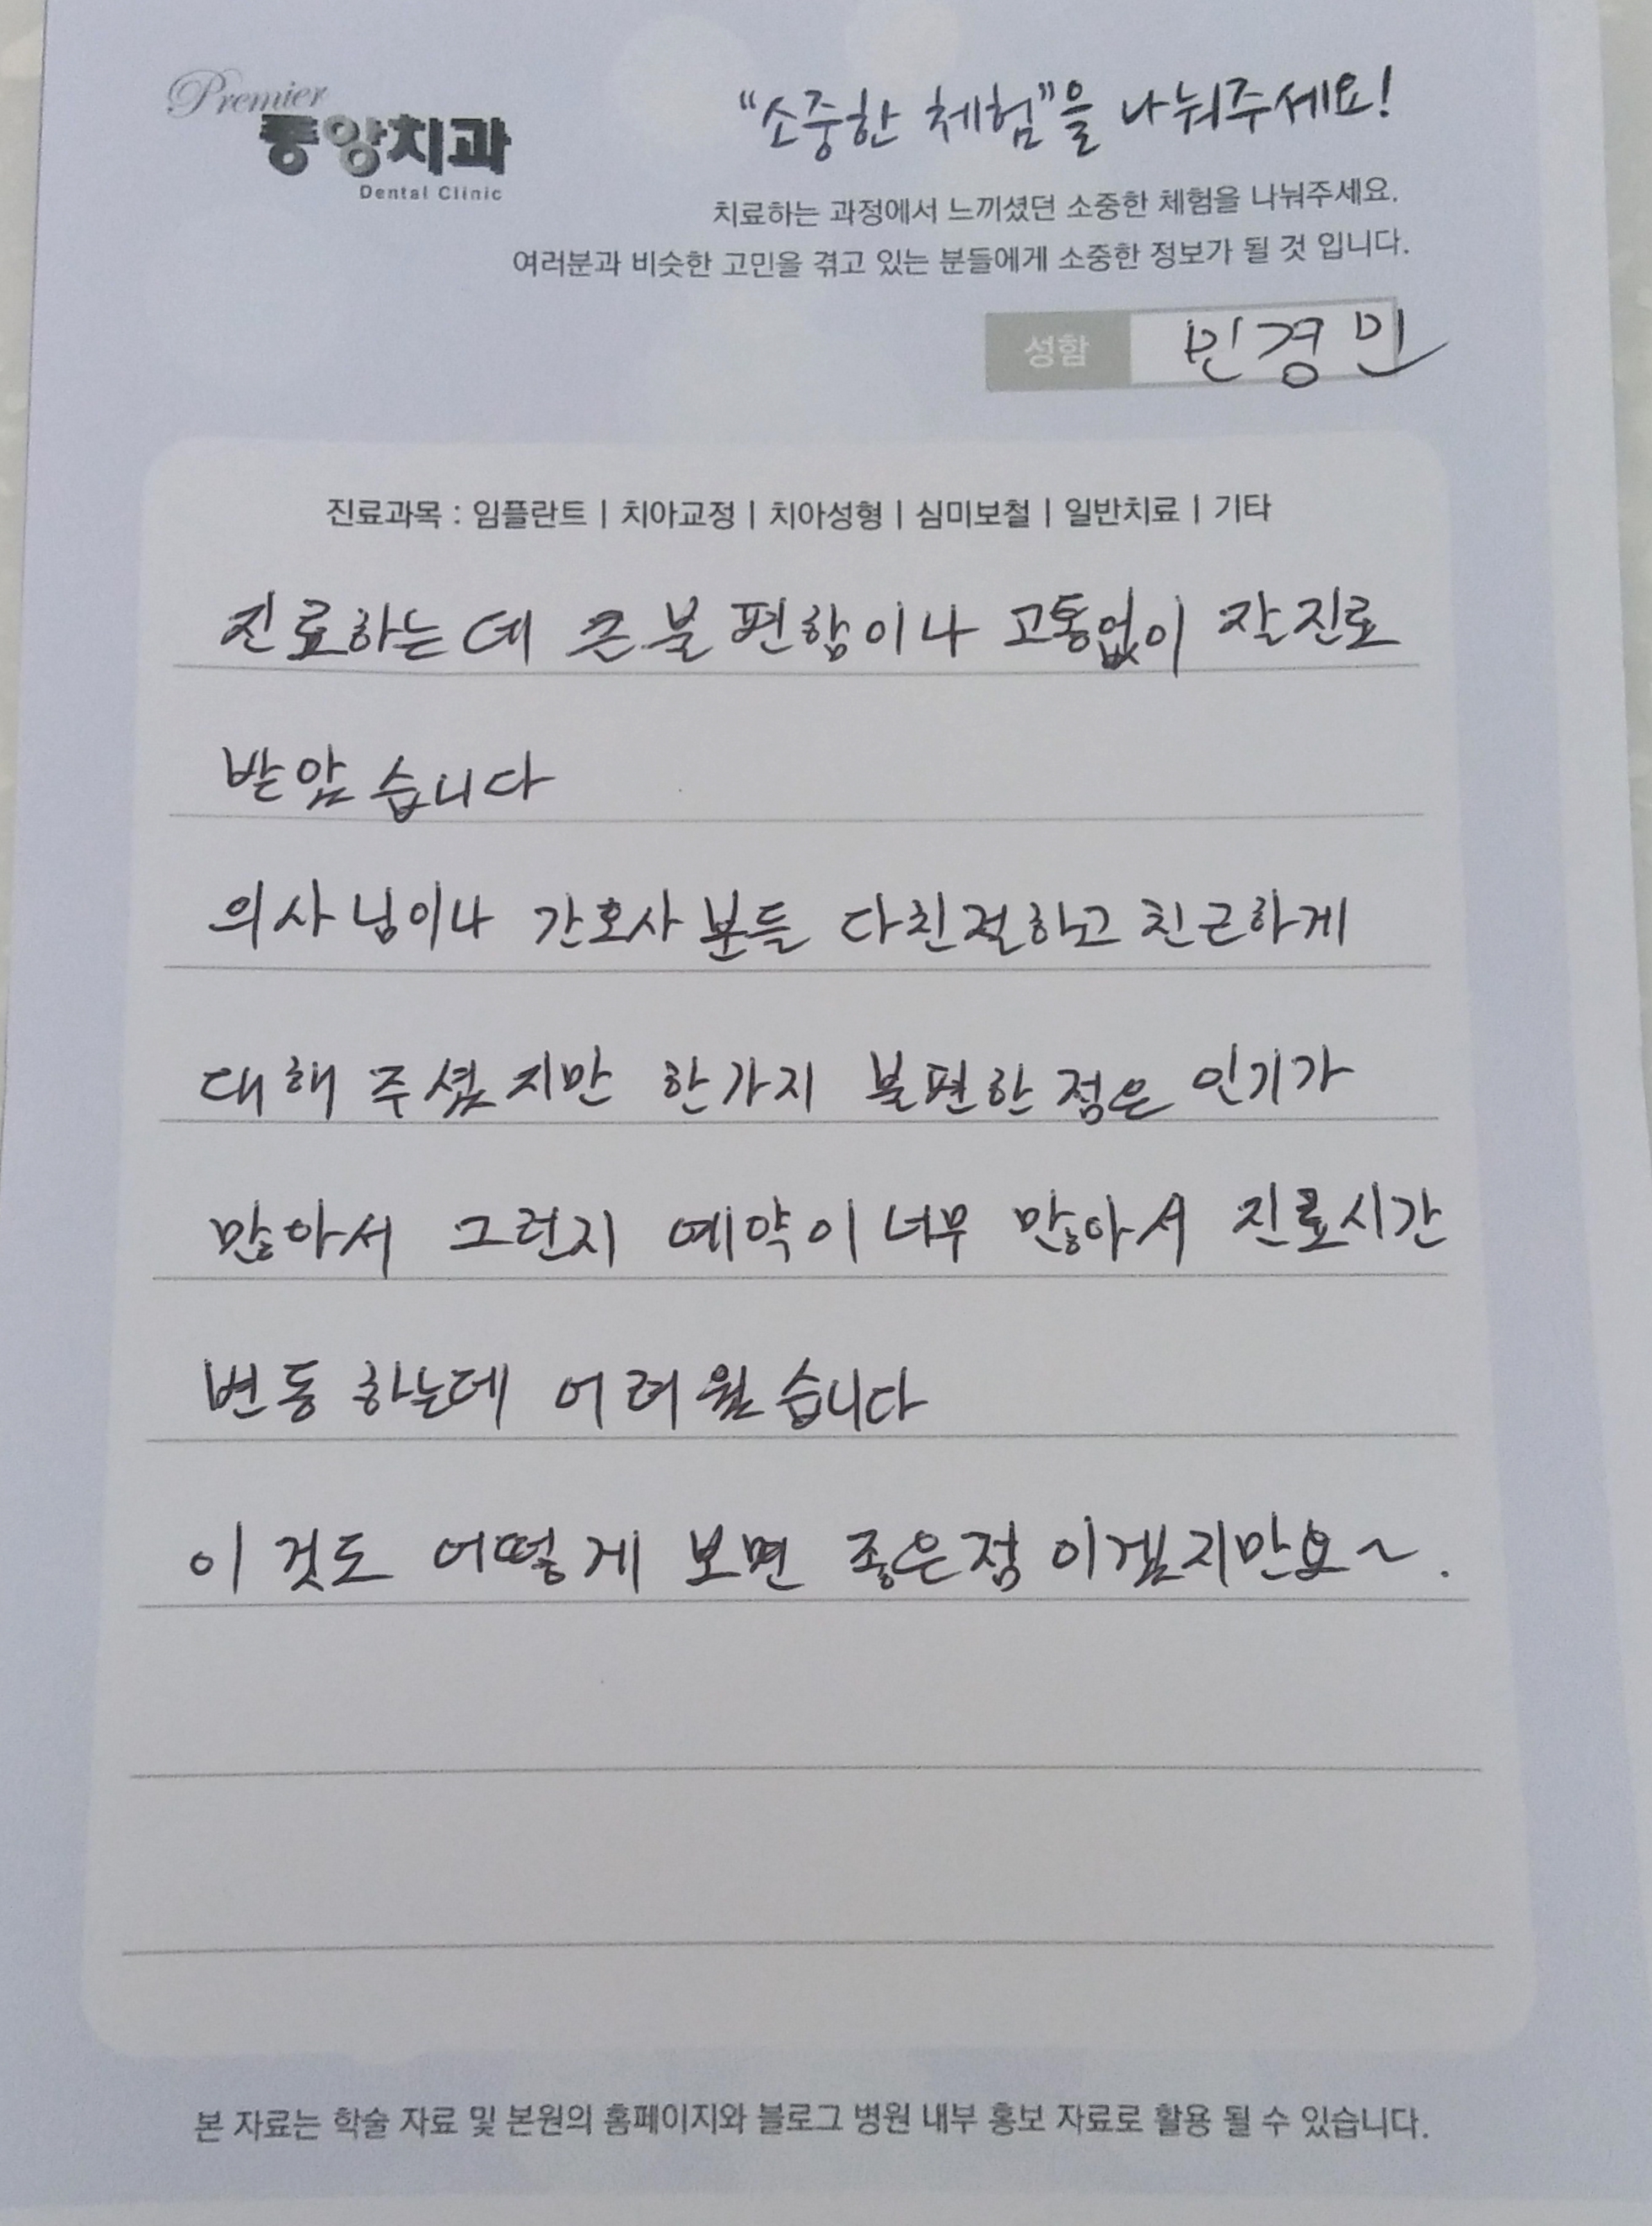 Premier
중앙치과
Dental Clinic
"소중한 체험"을 나눠주세요!
치료하는 과정에서 느끼셨던 소중한 체험을 나눠주세요.
여러분과 비슷한 고민을 겪고 있는 분들에게 소중한 정보가 될 것 입니다.
성함 민경민
진료과목 : 임플란트 | 치아교정 | 치아성형 | 심미보철 | 일반치료 | 기타
진료하는데 큰 불편함이나 고통없이 잘 진료
받았습니다
의사님이나 간호사분들 다 친절하고 친근하게
대해 주셨지만 한가지 불편한 점은 인기가
많아서 그런지 예약이 너무 많아서 진료시간
변동 하는데 어려웠습니다
이것도 어떻게 보면 좋은점 이겠지만요~.
본 자료는 학술 자료 및 본원의 홈페이지와 블로그 병원 내부 홍보 자료로 활용 될 수 있습니다.